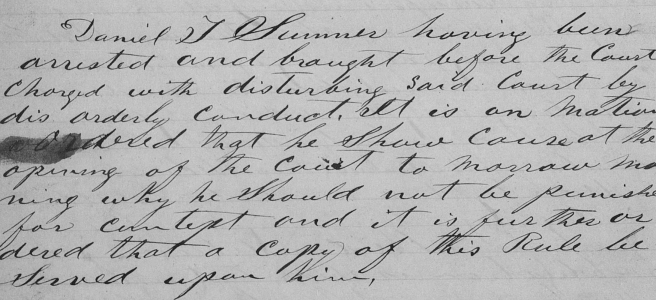 Daniel T Sumner having been
arrested and brought before the Court
Charged with disturbing said Court by
dis orderly conduct. It is on Motion
ordered that he show Cause at the
opening of the Court to morrow mo
ning why he should not be punishe
for contept and it is further or
dered that a copy of this Rule be
served upon him,